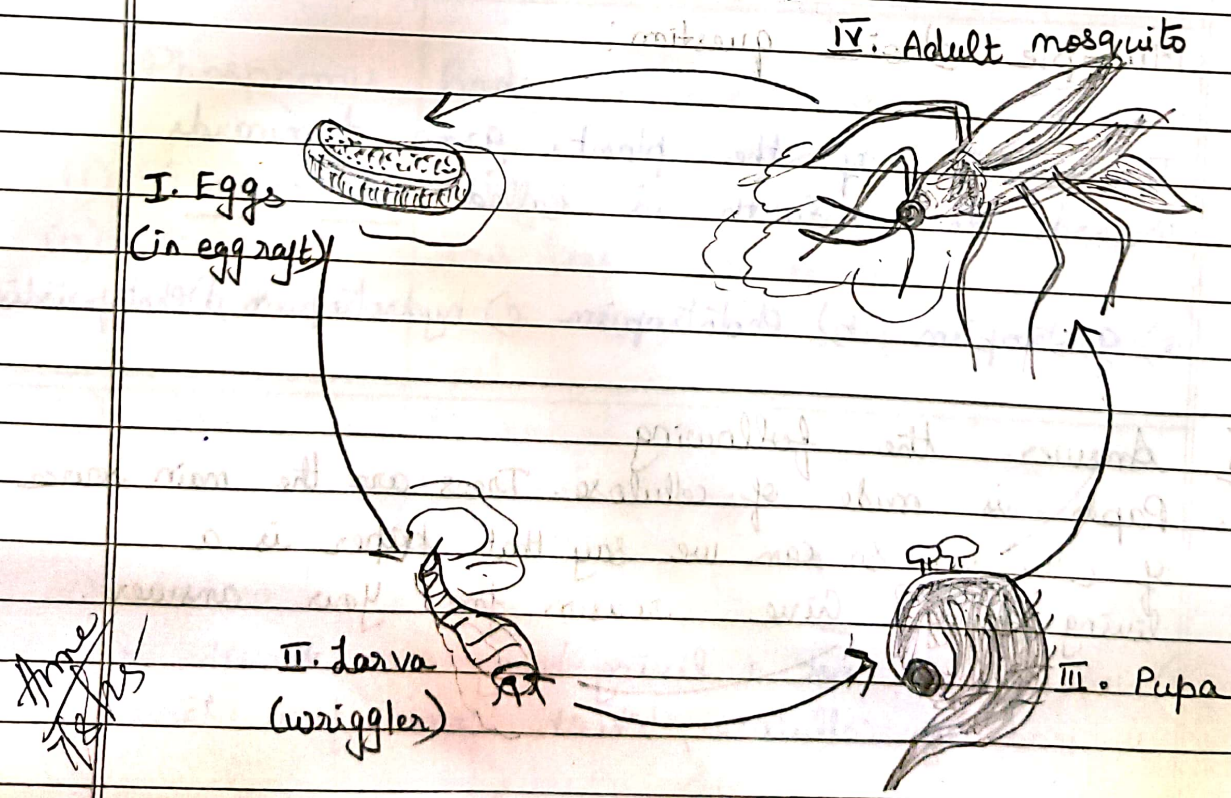 IV. Adult mosquito
I. Eggs
(in egg raft)
II. Larva
(wriggler)
III. Pupa